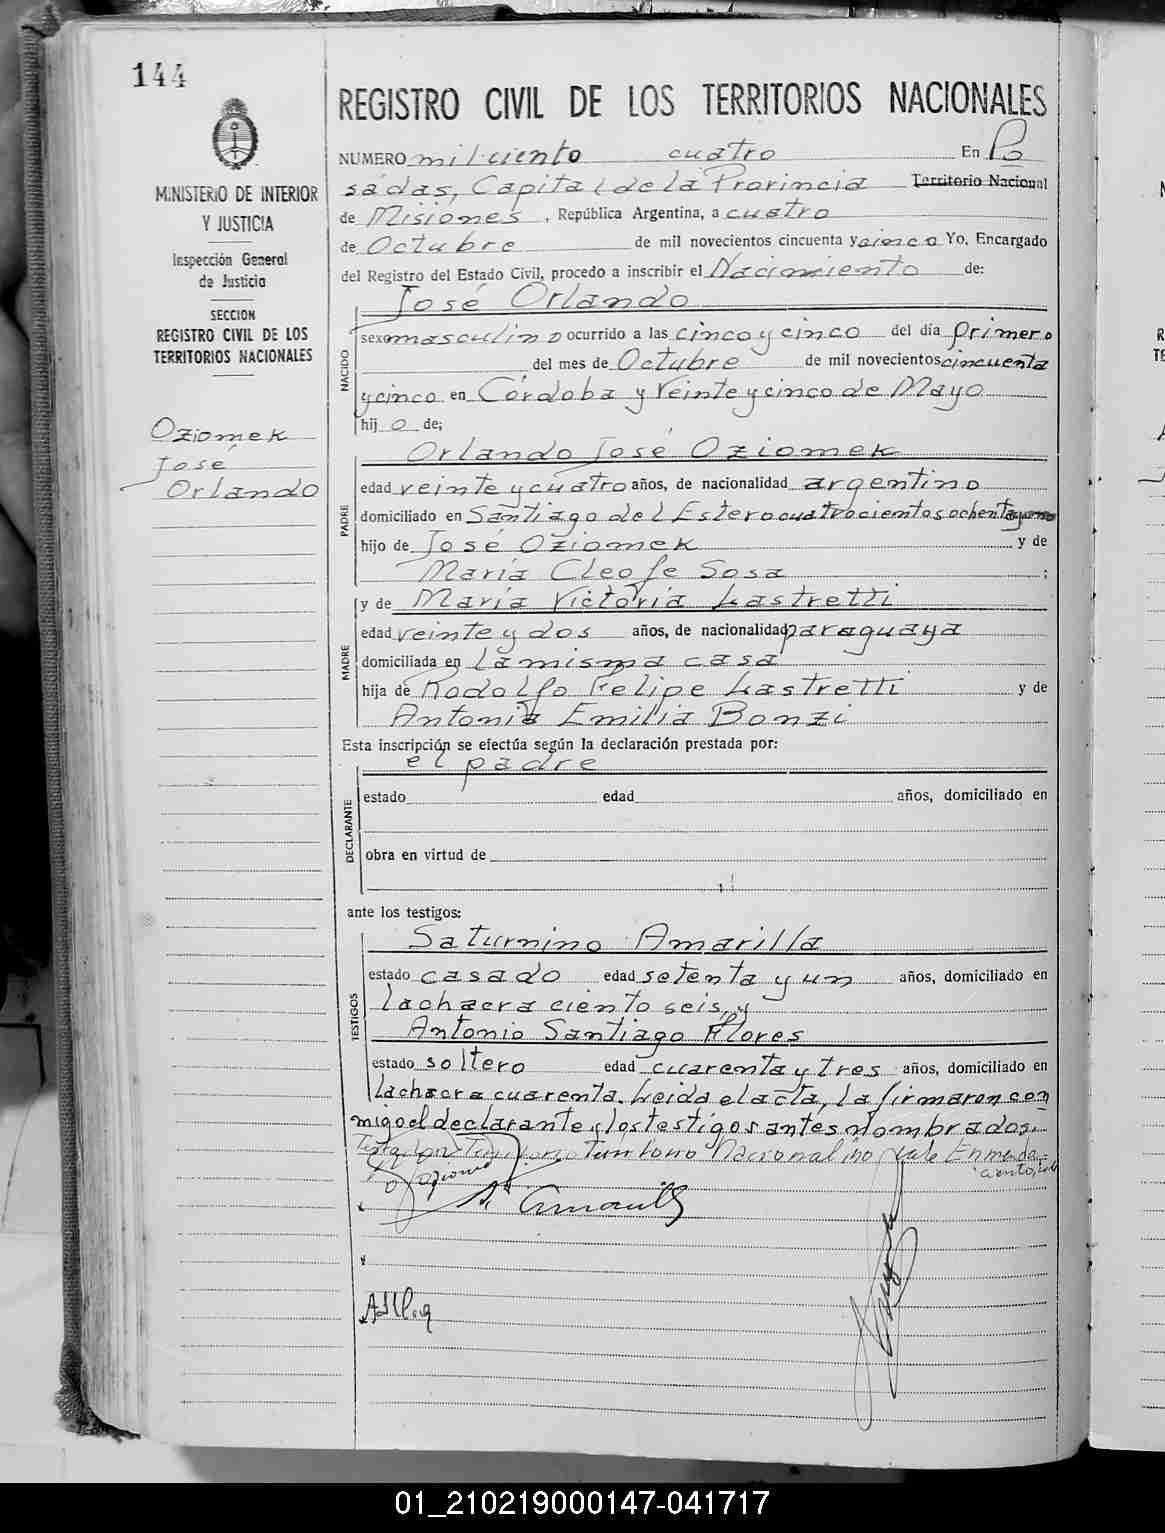 144
MINISTERIO DE INTERIOR
Y JUSTICIA
Inspección General
de Justicia
SECCION
REGISTRO CIVIL DE LOS
TERRITORIOS NACIONALES
Oziomek
José
Orlando
REGISTRO CIVIL DE LOS TERRITORIOS NACIONALES
NUMERO mil ciento cuatro En Po
sadas, Capital de la Provincia Territorio Nacional
de Misiones, República Argentina, a cuatro
de Octubre de mil novecientos cincuenta y cinco Yo, Encargado
del Registro del Estado Civil, procedo a inscribir el Nacimiento de:
José Orlando
NACIDO
sexo masculino ocurrido a las cinco y cinco del día primero
del mes de Octubre de mil novecientos cincuenta
y cinco en Córdoba y Veinte y cinco de Mayo
hijo de;
Orlando José Oziomek
PADRE
edad veinte y cuatro años, de nacionalidad argentino
domiciliado en Santiago del Estero cuatrocientos ochenta y uno
hijo de José Oziomek y de
María Cleofe Sosa ;
y de María Victoria Lastretti
MADRE
edad veinte y dos años, de nacionalidad paraguaya
domiciliada en la misma casa
hija de Rodolfo Felipe Lastretti y de
Antonia Emilia Bonzi
Esta inscripción se efectúa según la declaración prestada por:
el padre
DECLARANTE
estado edad años, domiciliado en
obra en virtud de
ante los testigos:
Saturnino Amarilla
TESTIGOS
estado casado edad setenta y un años, domiciliado en
la chacra ciento seis, y
Antonio Santiago Flores
estado soltero edad cuarenta y tres años, domiciliado en
la chacra cuarenta. Leida el acta, la firmaron con
migo el declarante y los testigos antes nombrados.
Territorio Nacional no vale Enmenda
ciento, vale
01_210219000147-041717